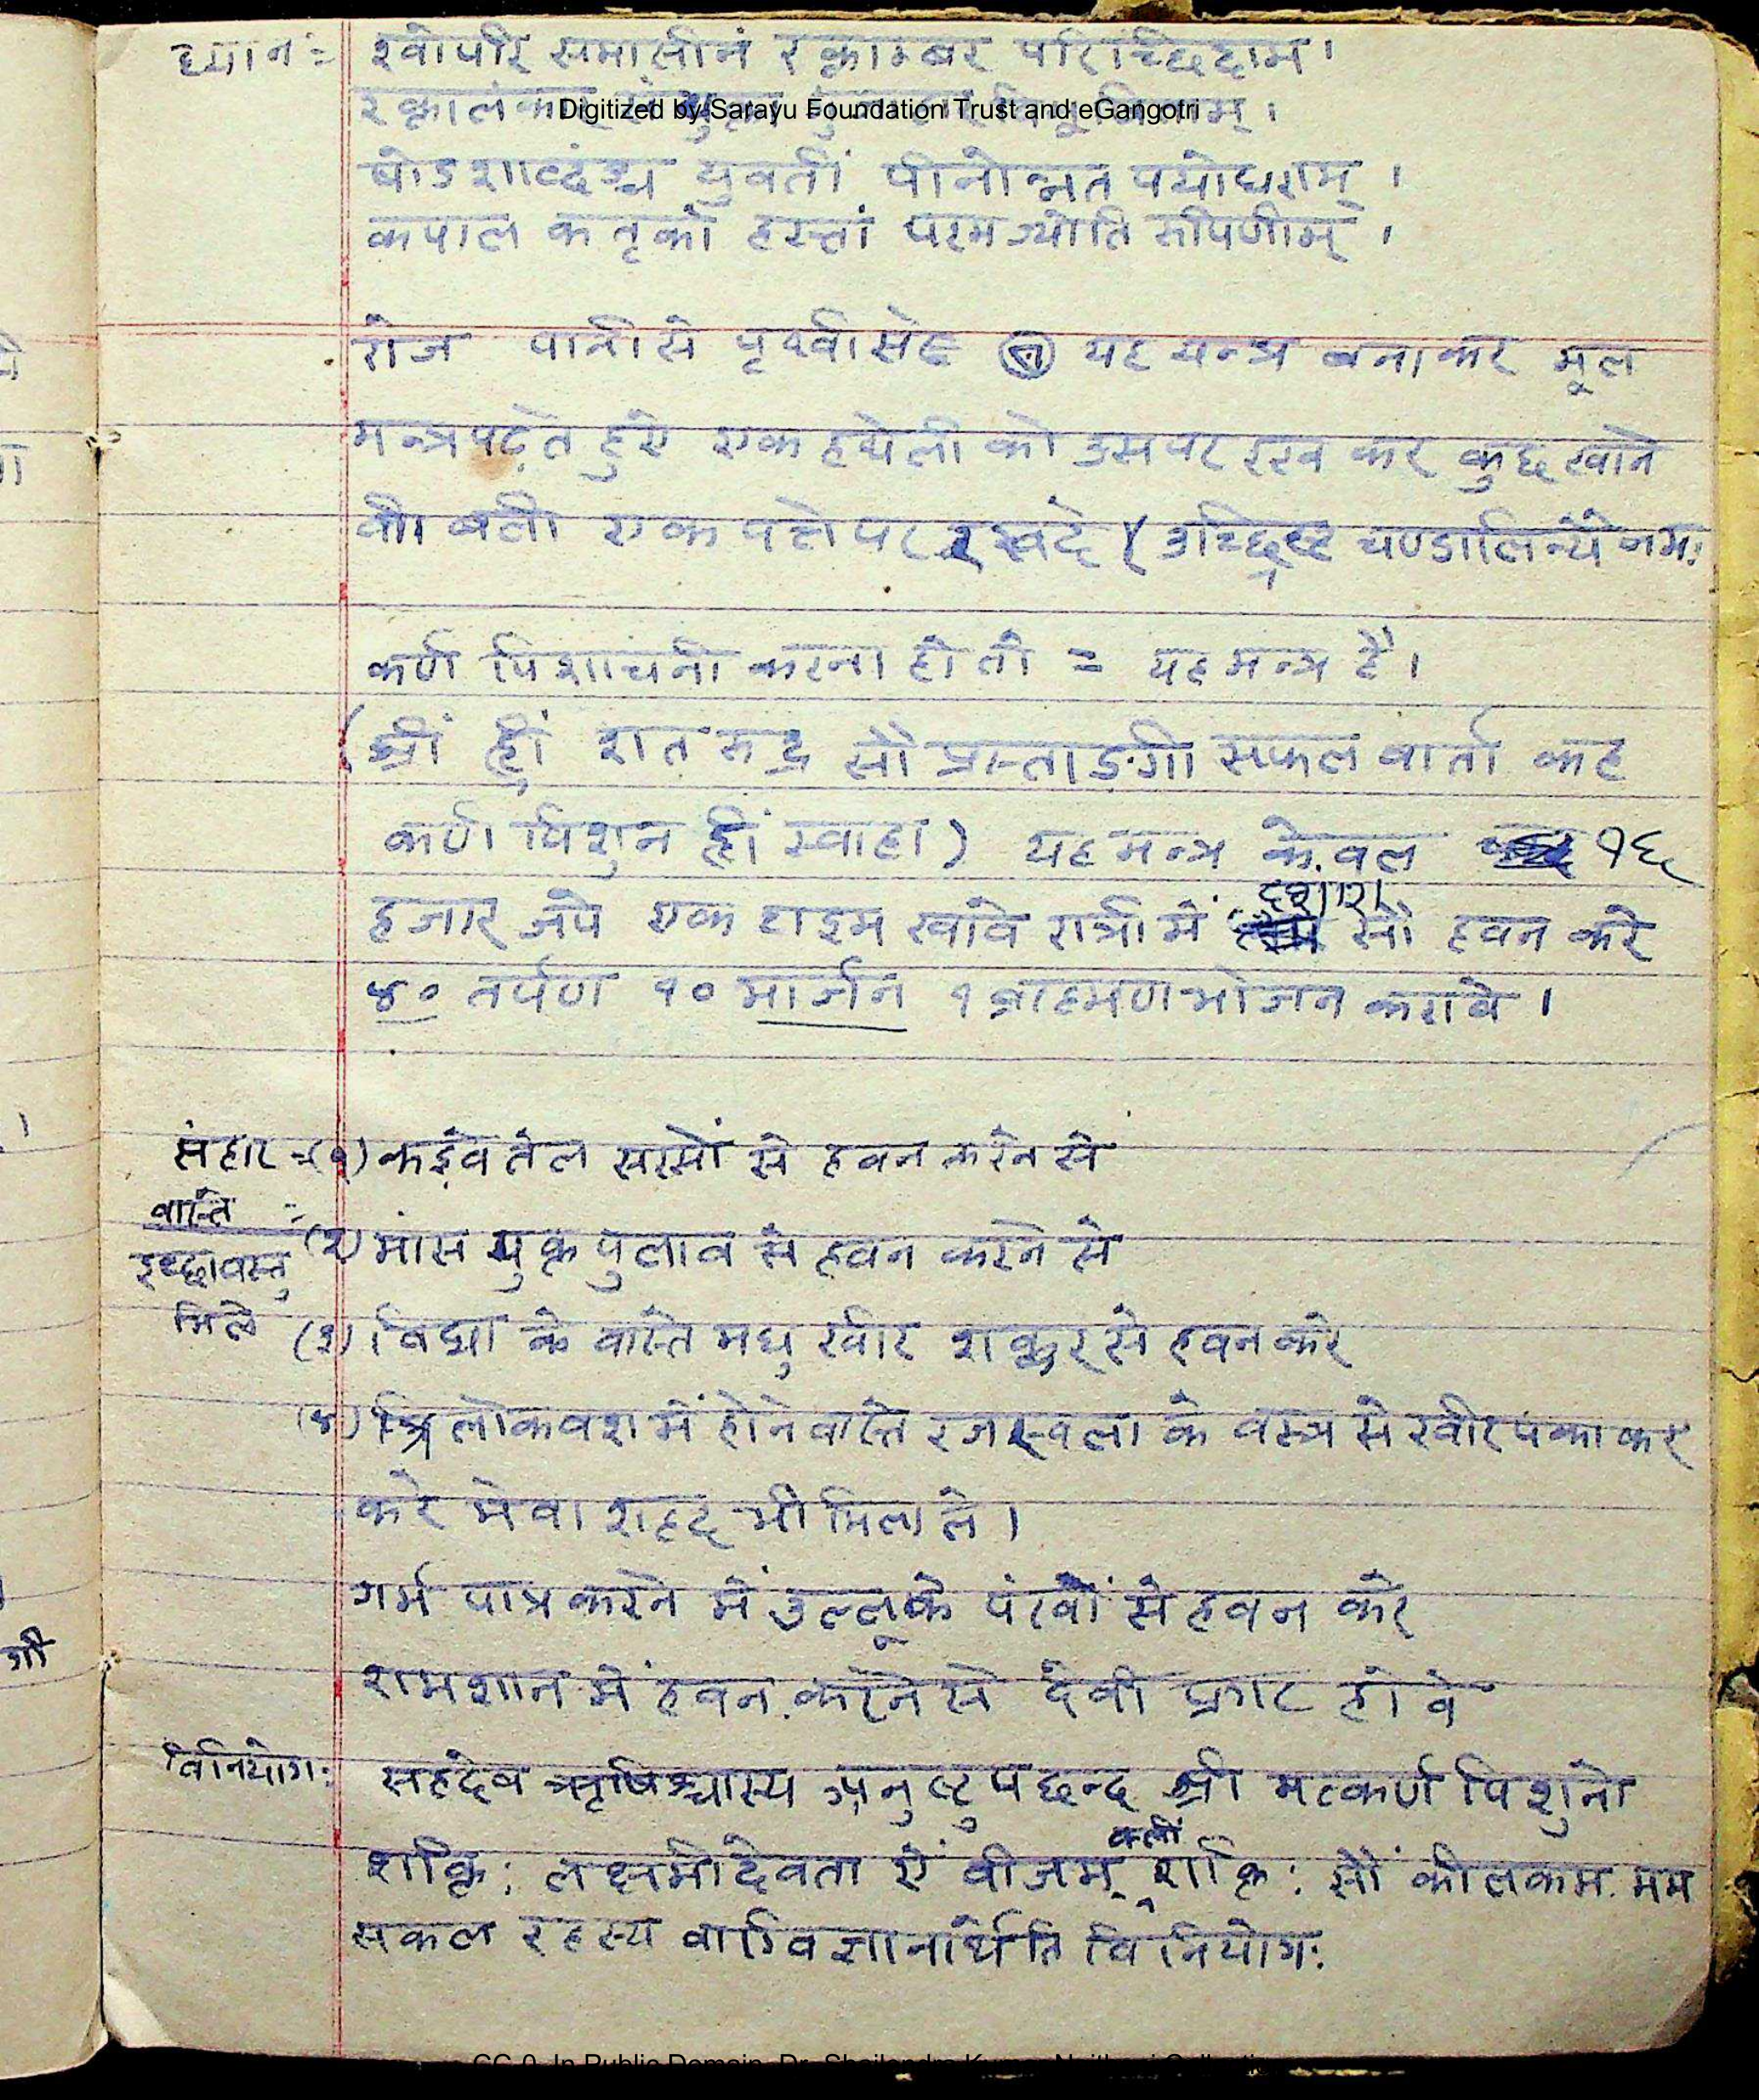 ध्यान:= श्वोपरि समासीनं रक्ताम्बर परिच्छिदाम।
रक्तालंकार
Digitized by Sarayu Foundation Trust and eGangotri
षोडशाब्दंश्च युवतीं पीनोन्नत पयोधराम्।
कपाल कतृका हस्तां परमज्योति रूपिणीम्।
रोज पानी से पृथ्वी से यह यन्त्र बनाकर मूल
मन्त्र पढ़ते हुए एक हथेली को उस पर रख कर कुछ खाने
की बली एक पत्ते पर रखदे (उच्छिष्ट चण्डालिन्यै नमः
कर्ण पिशाचनी करना हो तो = यह मन्त्र है।
(श्रीं ह्रीं शत रुद्र सौ प्रस्ताङ्गी सफल वार्ता कह
कर्ण पिशुन ह्रीं स्वाहा) यह मन्त्र केवल १६
हजार जपे एक टाइम खावे रात्री में दशांश सौ हवन करे
४० तर्पण १० मार्जन १ ब्राह्मण भोजन करावे।
संहार =(१) कड़वे तेल सरसों से हवन करने से
वास्ते :-
(२) मांस युक्त पुलाव से हवन करने से
इच्छा वस्तु
मिले
(३) विद्या के वास्ते मधु खीर शक्कर से हवन करे
(४) त्रिलोक वश में होने वास्ते रजस्वला के वस्त्र से खीर पका कर
करे मेवा शहद भी मिला ले।
गर्म पात्र करने में उल्लू के पंखों से हवन करे
शमशान में हवन करने से देवी प्रगट होवे
विनियोग: सहदेव ऋषिश्चास्य अनुष्टुप छन्द श्री मत्कर्ण पिशुनी
शक्ति: लक्ष्मीदेवता ऐं बीजम् क्लीं शक्ति: सौं कीलकम. मम
सकल रहस्य वाग्विज्ञानार्थेति विनियोग: